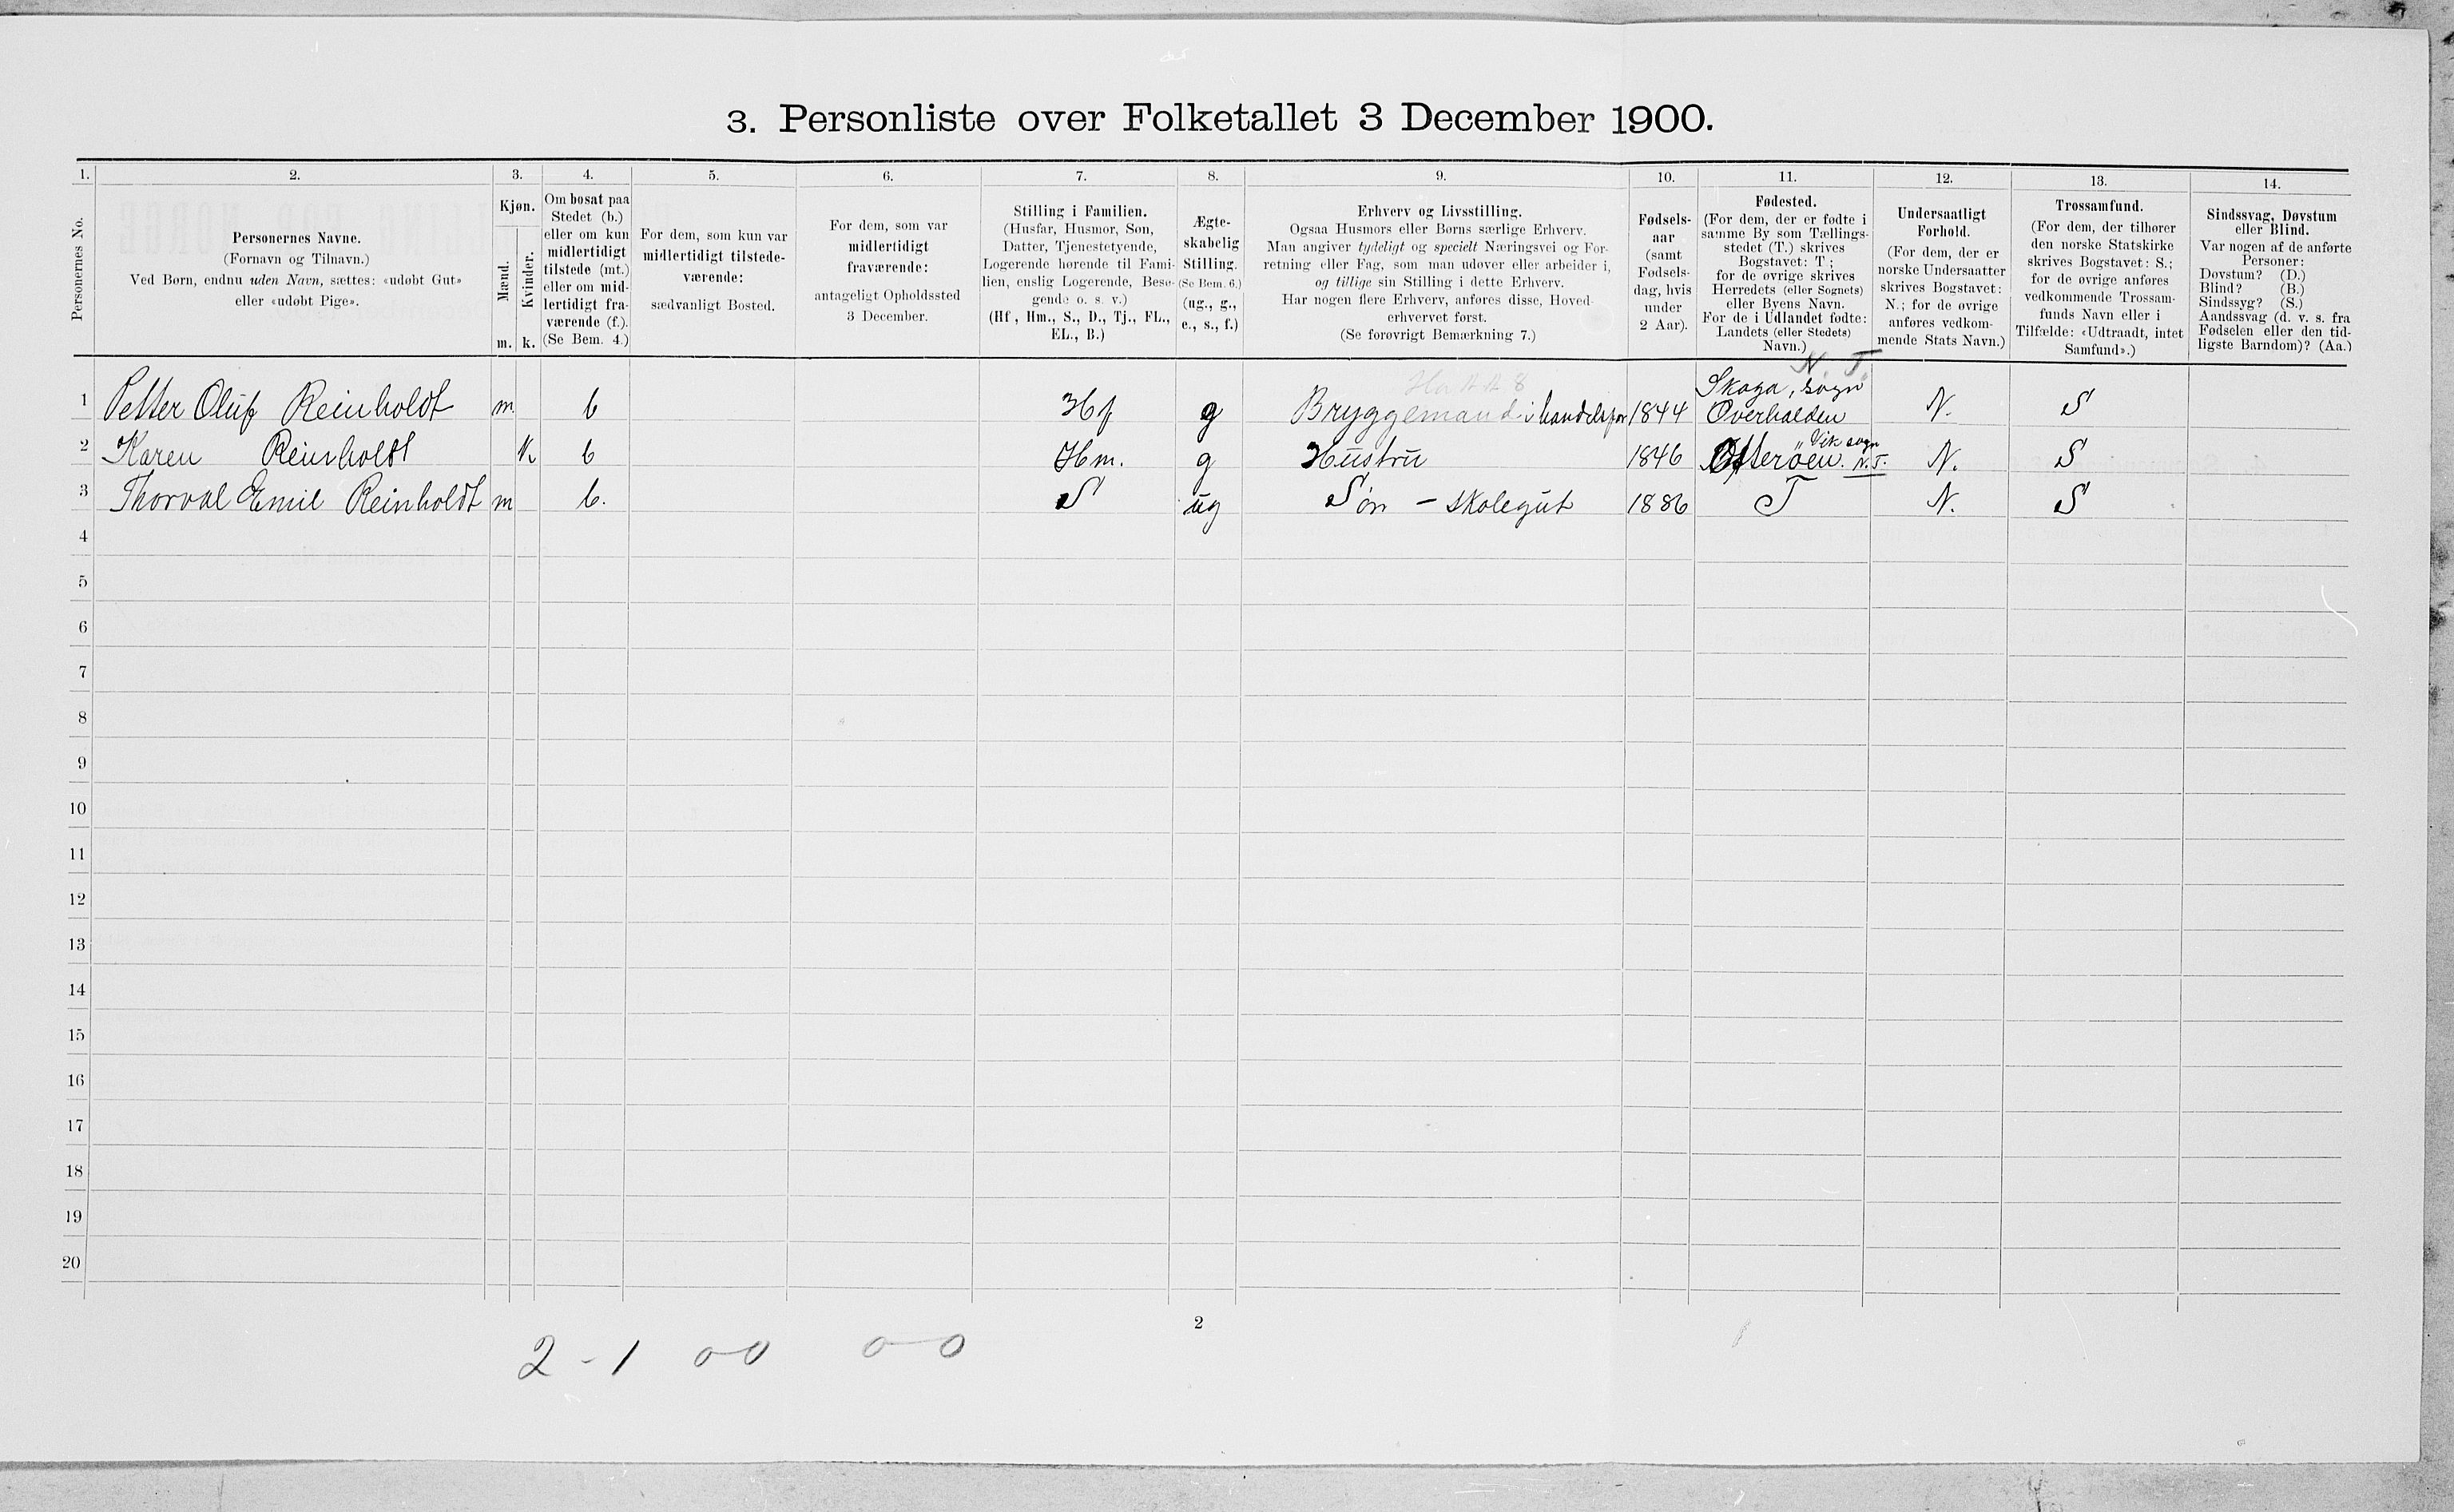 3. Personliste over Folketallet 3 December 1900.
1. 2. 3. 4. 5. 6. 7. 8. 9. 10. 11. 12. 13. 14.
Personernes No.
Personernes Navne.
(Fornavn og Tilnavn.)
Ved Børn, endnu uden Navn, sættes: «udøbt Gut»
eller «udøbt Pige».
Kjøn.
Mænd.
Kvinder.
m. k.
Om bosat paa
Stedet (b.)
eller om kun
midlertidigt
tilstede (mt.)
eller om mid-
lertidigt fra-
værende (f.).
(Se Bem. 4.)
For dem, som kun var
midlertidigt tilstede-
værende:
sædvanligt Bosted.
For dem, som var
midlertidigt
fraværende:
antageligt Opholdssted
3 December.
Stilling i Familien.
(Husfar, Husmor, Søn,
Datter, Tjenestetyende,
Logerende hørende til Fami-
lien, enslig Logerende, Besø-
gende o. s. v.)
(Hf, Hm., S., D., Tj., FL.,
EL., B.)
Ægte-
skabelig
Stilling.
(Se Bem. 6.)
(ug., g.,
e., s., f.)
Erhverv og Livsstilling.
Ogsaa Husmors eller Børns særlige Erhverv.
Man angiver tydeligt og specielt Næringsvei og For-
retning eller Fag, som man udøver eller arbeider i,
og tillige sin Stilling i dette Erhverv.
Har nogen flere Erhverv, anføres disse, Hoved-
erhvervet først.
(Se forøvrigt Bemærkning 7.)
Fødsels-
aar
(samt
Fødsels-
dag, hvis
under
2 Aar).
Fødested.
(For dem, der er fødte i
samme By som Tællings-
stedet (T.) skrives
Bogstavet: T;
for de øvrige skrives
Herredets (eller Sognets)
eller Byens Navn.
For de i Udlandet fødte:
Landets (eller Stedets)
Navn.)
Undersaatligt
Forhold.
(For dem, der er
norske Undersaatter
skrives Bogstavet:
N.; for de øvrige
anføres vedkom-
mende Stats Navn.)
Trossamfund.
(For dem, der tilhører
den norske Statskirke
skrives Bogstavet: S.;
for de øvrige anføres
vedkommende Trossam-
funds Navn eller i
Tilfælde: «Udtraadt, intet
Samfund».)
Sindssvag, Døvstum
eller Blind.
Var nogen af de anførte
Personer:
Døvstum? (D.)
Blind? (B.)
Sindssyg? (S.)
Aandssvag (d. v. s. fra
Fødselen eller den tid-
ligste Barndom)? (Aa.)
N. T.
Skaga, sogn
1 Petter Oluf Reinholdt m b Hf g Bryggemand i handelsfor 1844 Overhalden N. S
Vik sogn
2 Karen Reinholdt k b Hm. g Hustru 1846 Øfterøen. N.T. N. S
3 Thorval Emil Reinholdt m b. S ug Søn - skolegut 1886 T N. S
4
5
6
7
8
9
10
11
12
13
14
15
16
17
18
19
20
2
2 - 1 0 0 0 - 0